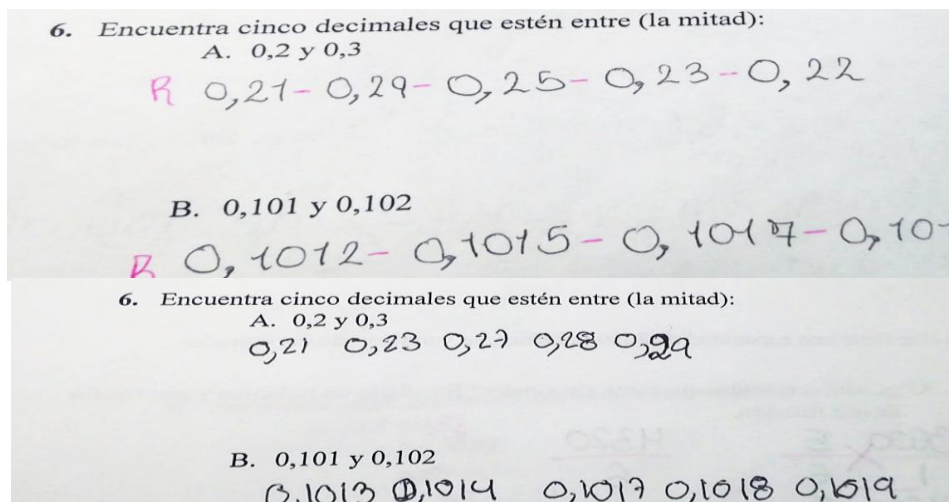 6. Encuentra cinco decimales que estén entre (la mitad):
A. 0,2 y 0,3
R 0,21- 0,29- 0,25- 0,23- 0,22
B. 0,101 y 0,102
R 0,1012- 0,1015- 0,1017- 0,10
6. Encuentra cinco decimales que estén entre (la mitad):
A. 0,2 y 0,3
0,21 0,23 0,27 0,28 0,29
B. 0,101 y 0,102
0,1013 0,1014 0,1017 0,1018 0,1019